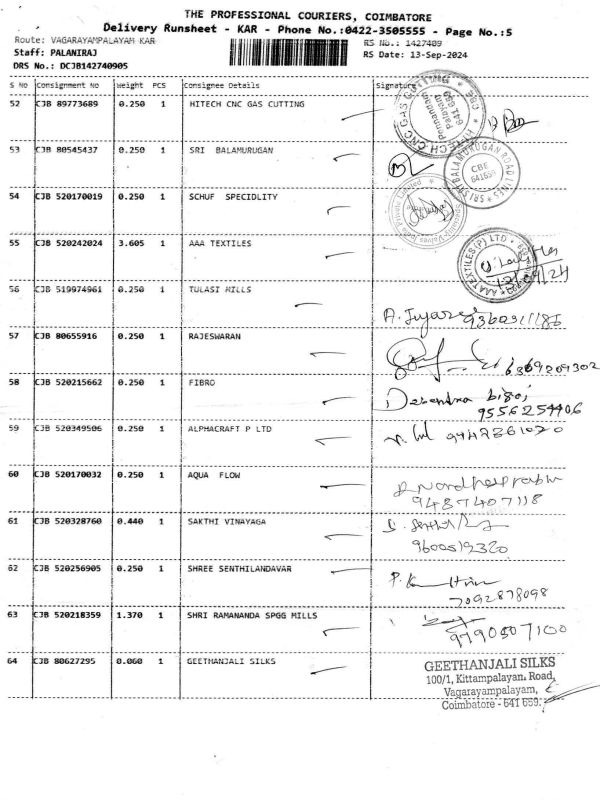 THE PROFESSIONAL COURIERS, COIMBATORE
Delivery Runsheet - KAR - Phone No.:0422-3505555 - Page No.:5
Route: VAGARAYAMPALAYAM KAR
RS No.: 1427409
Staff: PALANIRAJ
RS Date: 13-Sep-2024
DRS No.: DCJB142740905
S No Consignment No Weight PCS Consignee Details Signature
52 CJB 89773689 0.250 1 HITECH CNC GAS CUTTING
HI-TECH CNC GAS CUTTING CBE Ponnandam Palayam 641 659
53 CJB 80545437 0.250 1 SRI BALAMURUGAN
SRI SRI BALAMURUGAN ROAD LINES CBE 641659
54 CJB 520170019 0.250 1 SCHUF SPECIDLITY
55 CJB 520242024 3.605 1 AAA TEXTILES
AAA TEXTILES (P) LTD
13/09/24
56 CJB 519974961 0.250 1 TULASI MILLS
57 CJB 80655916 0.250 1 RAJESWARAN
58 CJB 520215662 0.250 1 FIBRO
9556254406
59 CJB 520349506 0.250 1 ALPHACRAFT P LTD
60 CJB 520170032 0.250 1 AQUA FLOW
9487407118
61 CJB 520328760 0.440 1 SAKTHI VINAYAGA
9600519320
62 CJB 520256905 0.250 1 SHREE SENTHILANDAVAR
7092878098
63 CJB 520218359 1.370 1 SHRI RAMANANDA SPGG MILLS
9790507100
64 CJB 80627295 0.060 1 GEETHANJALI SILKS
GEETHANJALI SILKS
100/1, Kittampalayan. Road,
Vagarayampalayam,
Coimbatore - 641 659.